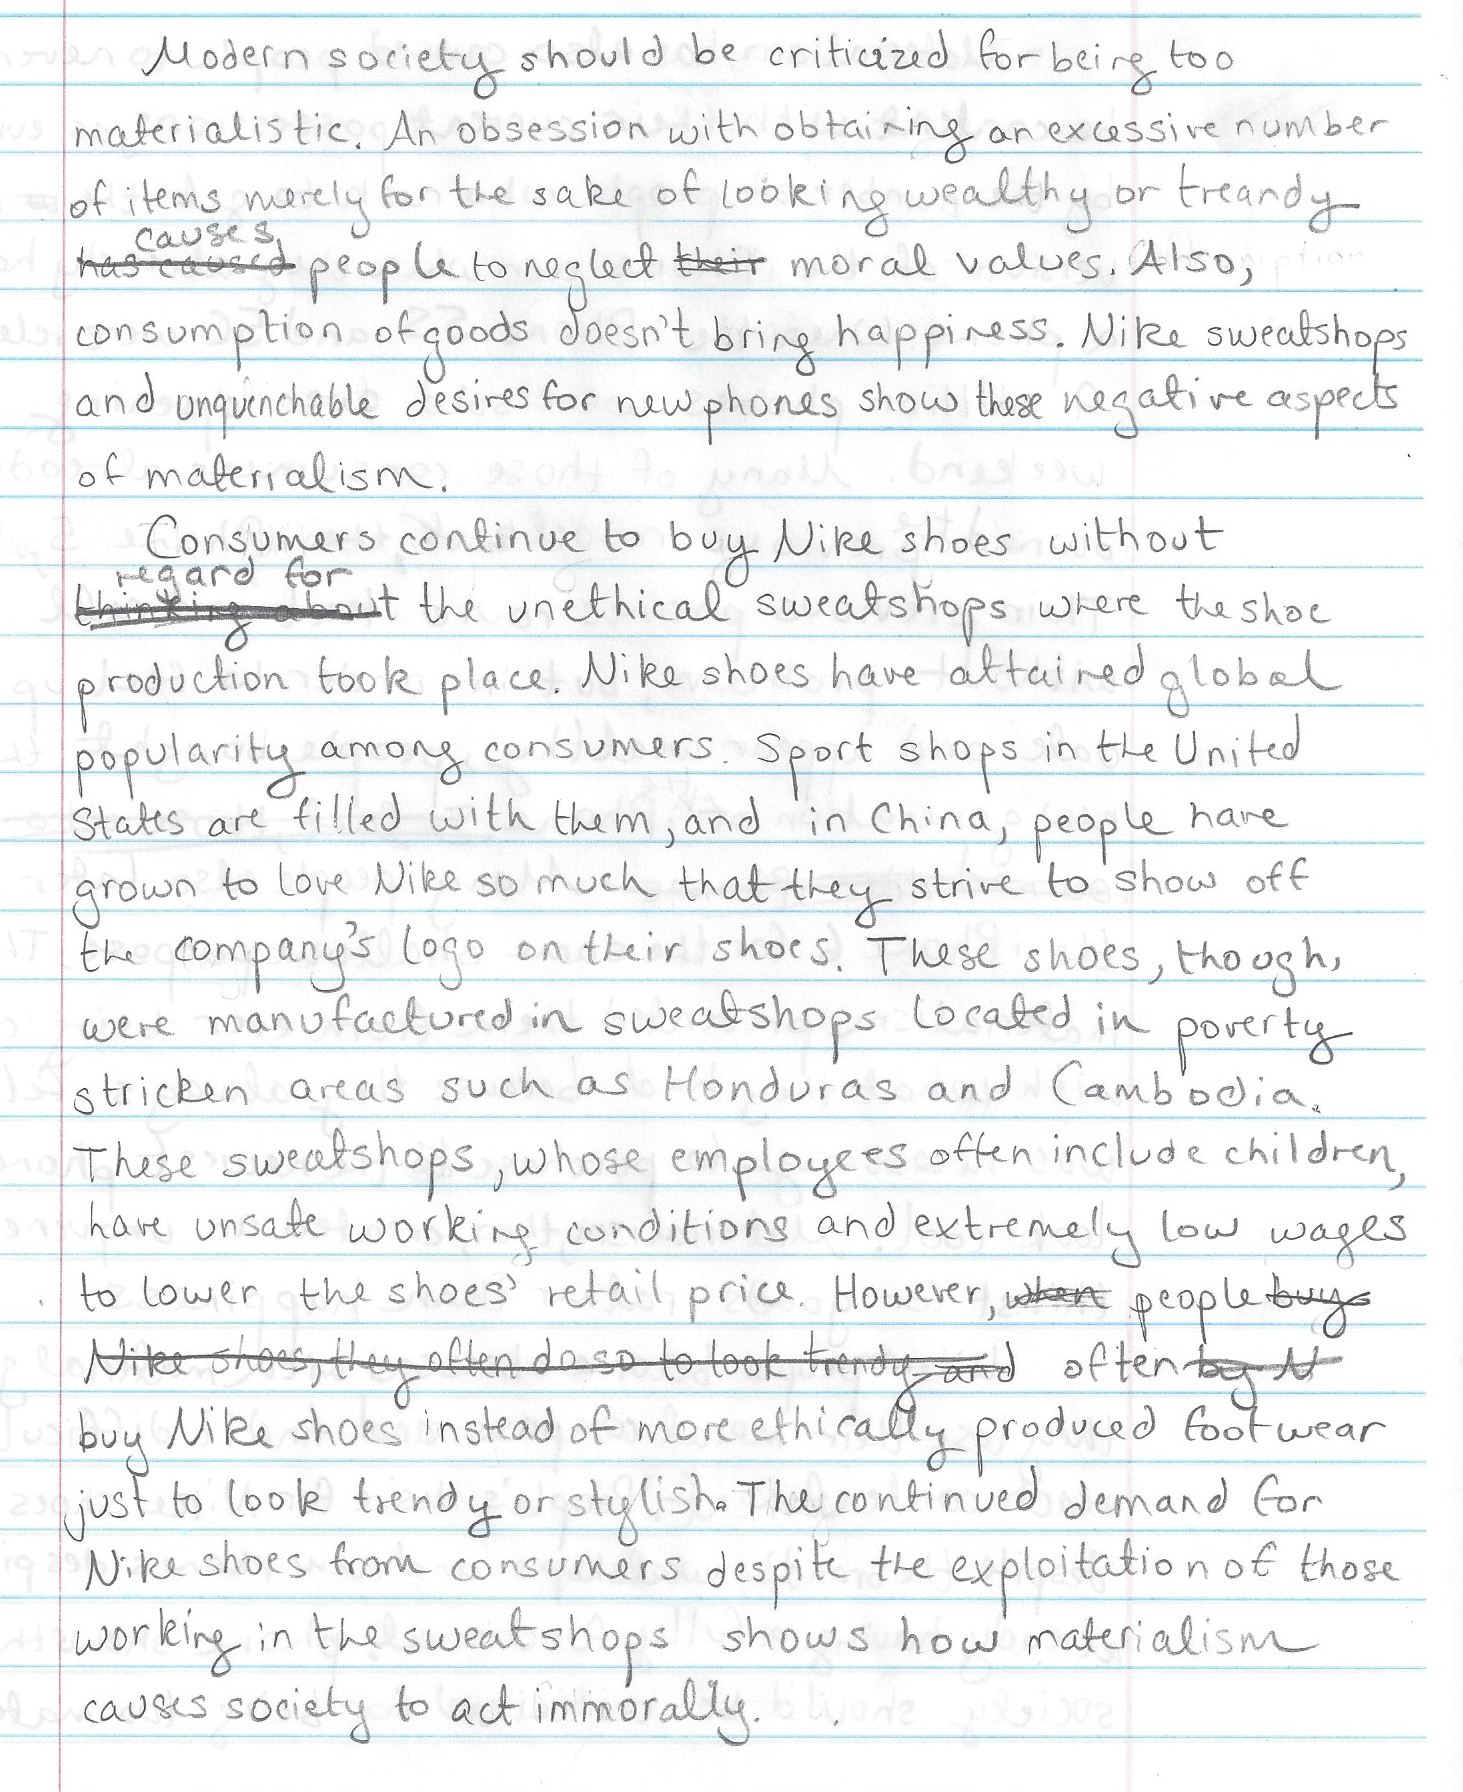 Modern society should be criticized for being too
materialistic. An obsession with obtaining an excessive number
of items merely for the sake of looking wealthy or treandy
causes
has caused people to neglect their moral values. Also,
consumption of goods doesn't bring happiness. Nike sweatshops
and unquenchable desires for new phones show these negative aspects
of materialism.
Consumers continue to buy Nike shoes without
regard for
thinking about the unethical sweatshops where the shoe
production took place. Nike shoes have attained global
popularity among consumers. Sport shops in the United
States are filled with them, and in China, people have
grown to love Nike so much that they strive to show off
the company's logo on their shoes. These shoes, though,
were manufactured in sweatshops located in poverty
stricken areas such as Honduras and Cambodia.
These sweatshops, whose employees often include children,
have unsafe working conditions and extremely low wages
to lower the shoes' retail price. However, when people buy
Nike shoes, they often do so to look trendy and often by N
buy Nike shoes instead of more ethically produced footwear
just to look trendy or stylish. The continued demand for
Nike shoes from consumers despite the exploitation of those
working in the sweatshops shows how materialism
causes society to act immorally.